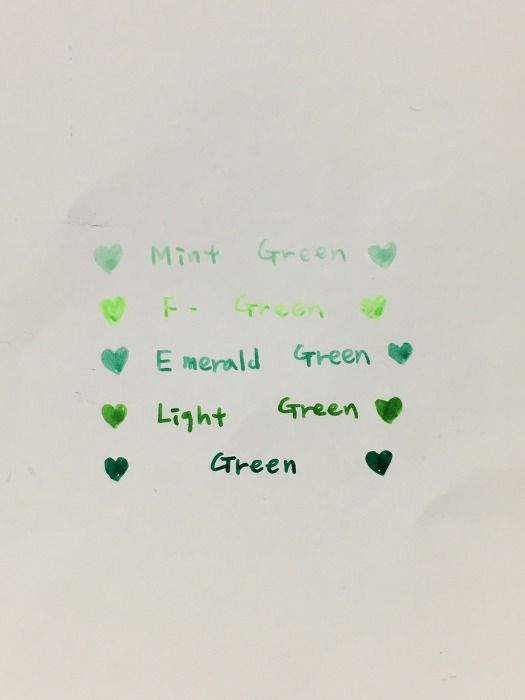 Mint Green
F- Green
Emerald Green
Light Green
Green